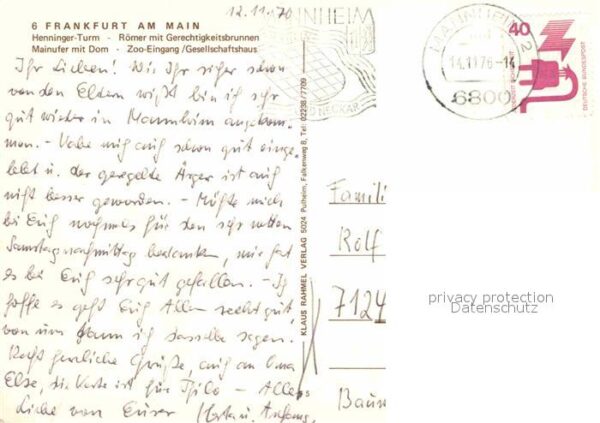 6 FRANKFURT AM MAIN
Henninger-Turm - Römer mit Gerechtigkeitsbrunnen
Mainufer mit Dom - Zoo-Eingang /Gesellschaftshaus
12.11.76
Ihr Lieben! Wie Ihr sicher schon
von den Eltern wißt bin ich sehr
gut wieder in Mannheim angekom-
men. - Habe mich auch schon gut einge-
lebt u. der geregelte Ärger ist auch
nicht besser geworden. - Möchte mich
bei Euch nochmals für den sehr netten
Samstagnachmittag bedanken, mir hat
es bei Euch sehr gut gefallen. - Ich
hoffe es geht Euch Allen recht gut,
von mir kann ich dasselbe sagen.
Recht herzliche Grüße, auch an Oma
Else, die Karte ist für Thilo - Alles
Liebe von Eurer
KLAUS RAHMEL VERLAG 5024 Pulheim, Falkenweg 8, Tel: 02238/7709
MANNHEIM
NECKAR
MANNHEIM 2
14.11.76-14
6800
40
DEUTSCHE BUNDESPOST
Famili
Rolf
7124
Baum
privacy protection
Datenschutz